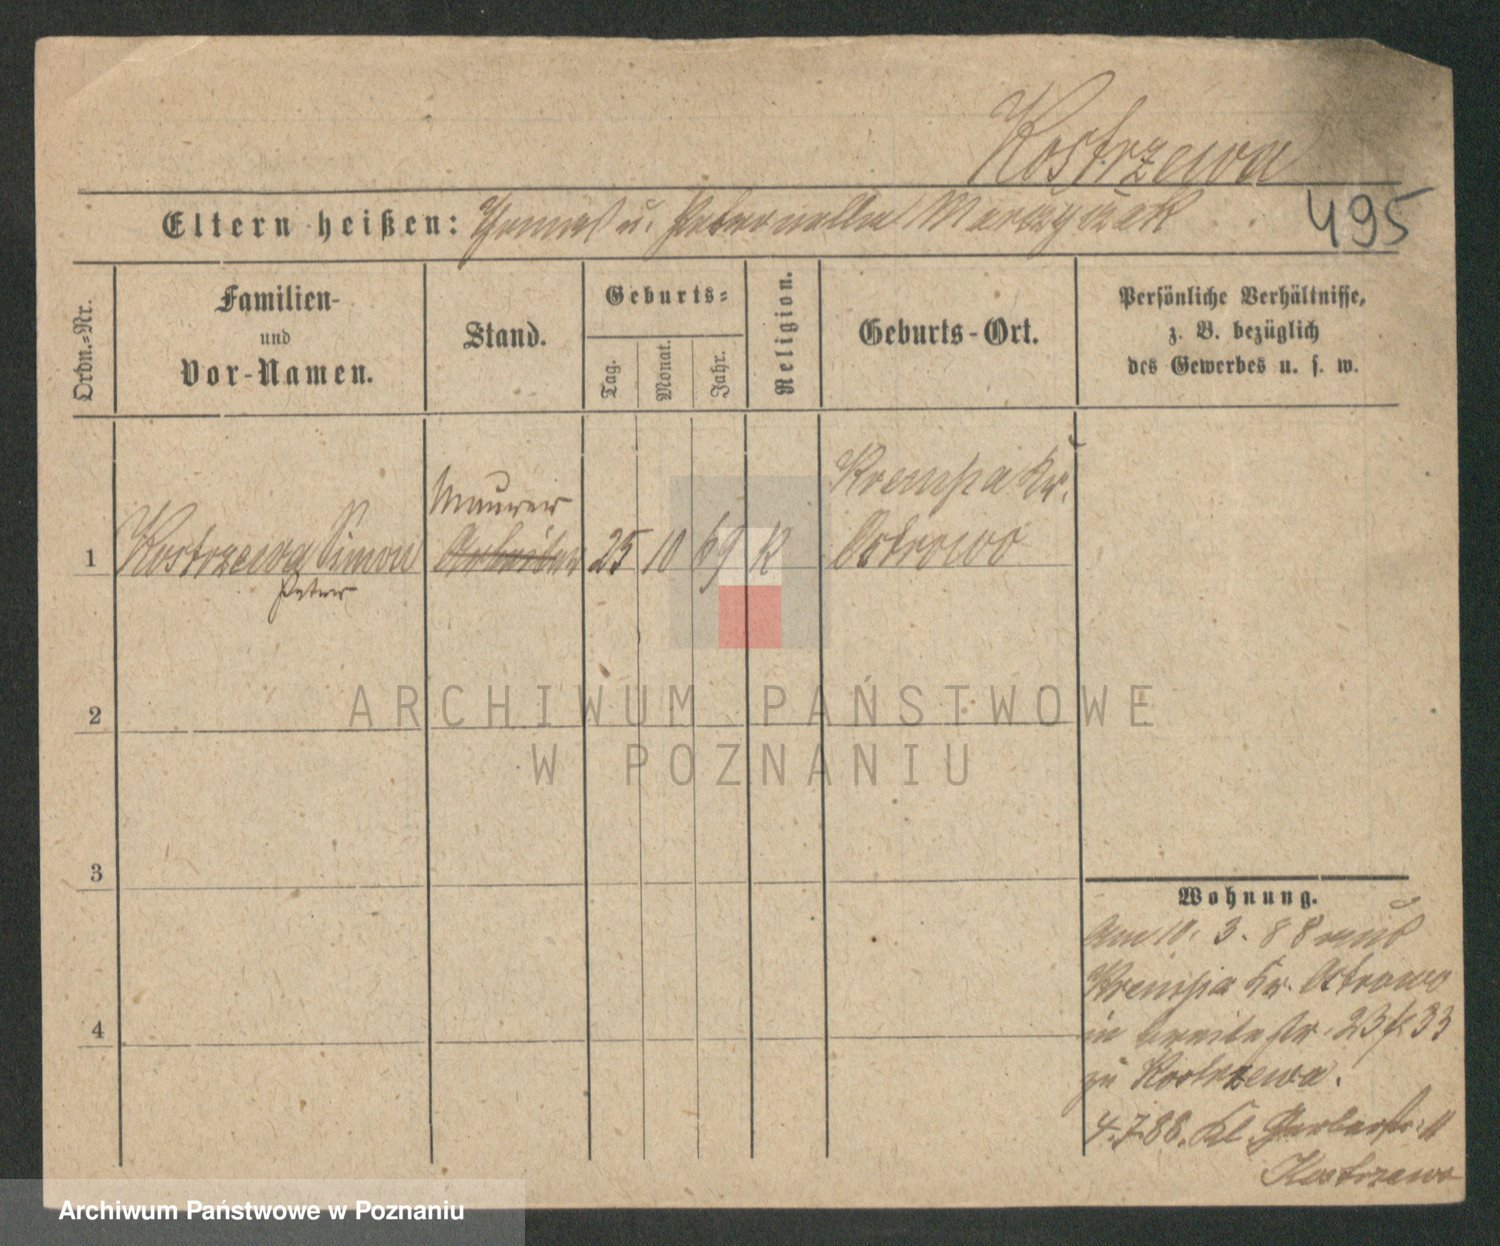 Kostrzewa
Eltern heißen: Thomas u. Petronella Marczyczak
495
Ordn.-Nr.
Familien-
und
Vor-Namen.
Stand.
Geburts-
Tag.
Monat.
Jahr.
Religion.
Geburts-Ort.
Persönliche Verhältnisse,
z. B. bezüglich
des Gewerbes u. s. w.
Maurer
Krempa Kr.
1 Kostrzewa Simon Arbeiter 25 10 69 K Ostrowo
Peter
ARCHIWUM PAŃSTWOWE
W POZNANIU
2
3
4
Wohnung.
Am 10. 3. 88 aus
Krempa Kr. Ostrowo
in breitestr. 23 33
zu Kostrzewa.
4.7.88. Kl. Gerberstr. 11
Kostrzewa
Archiwum Państwowe w Poznaniu